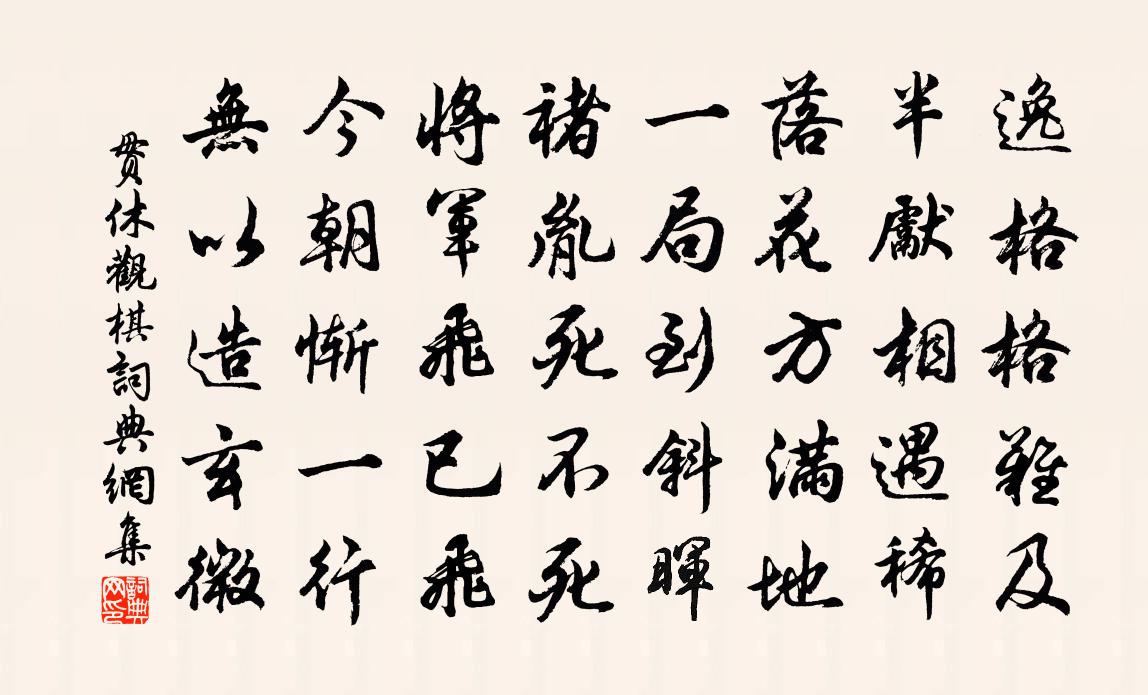 逸格格難及
半獻相遇稀
落花方滿地
一局到斜暉
褚胤死不死
將軍飛已飛
今朝慚一行
無以造玄微
貫休觀棋詞典網集
詞典網印